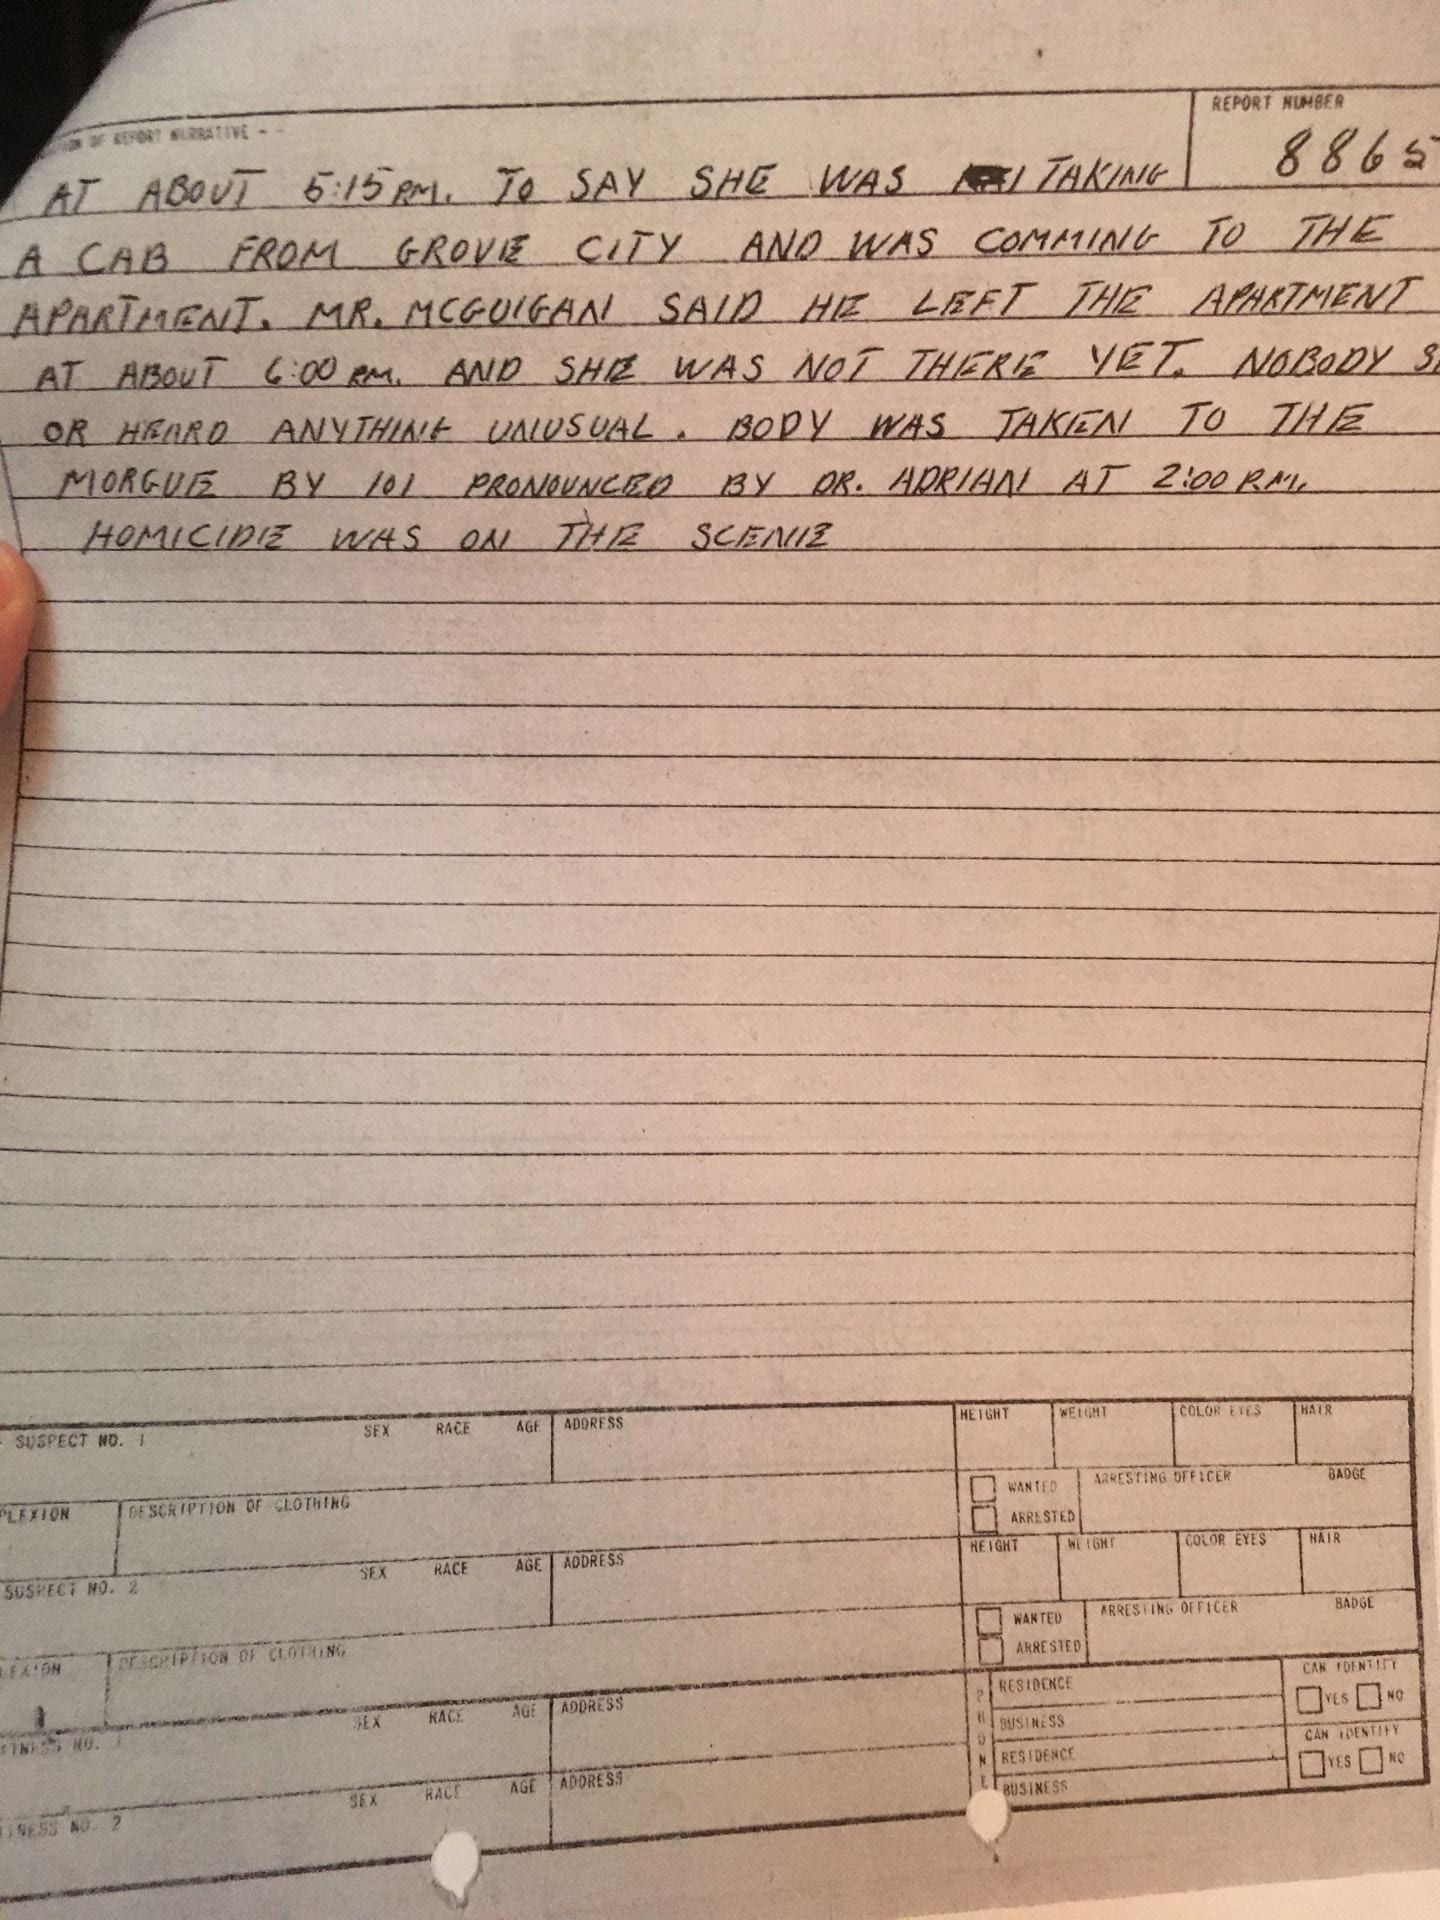 OF REPORT NARRATIVE - -
REPORT NUMBER
8865
AT ABOUT 5:15 P.M. TO SAY SHE WAS TAKING
A CAB FROM GROVE CITY AND WAS COMMING TO THE
APARTMENT. MR. MCGUIGAN SAID HE LEFT THE APARTMENT
AT ABOUT 6:00 P.M. AND SHE WAS NOT THERE YET. NOBODY
OR HEARD ANYTHING UNUSUAL. BODY WAS TAKEN TO THE
MORGUE BY 101 PRONOUNCED BY DR. ADRIAN AT 2:00 P.M.
HOMICIDE WAS ON THE SCENE
SUSPECT NO. 1 SEX RACE AGE ADDRESS HEIGHT WEIGHT COLOR EYES HAIR
PLEXION DESCRIPTION OF CLOTHING WANTED ARRESTED ARRESTING OFFICER BADGE
SUSPECT NO. 2 SEX RACE AGE ADDRESS HEIGHT WEIGHT COLOR EYES HAIR
LEXION DESCRIPTION OF CLOTHING WANTED ARRESTED ARRESTING OFFICER BADGE
ITNESS NO. 1 SEX RACE AGE ADDRESS PHONE RESIDENCE BUSINESS CAN IDENTIFY YES NO
ITNESS NO. 2 SEX RACE AGE ADDRESS RESIDENCE BUSINESS CAN IDENTIFY YES NO